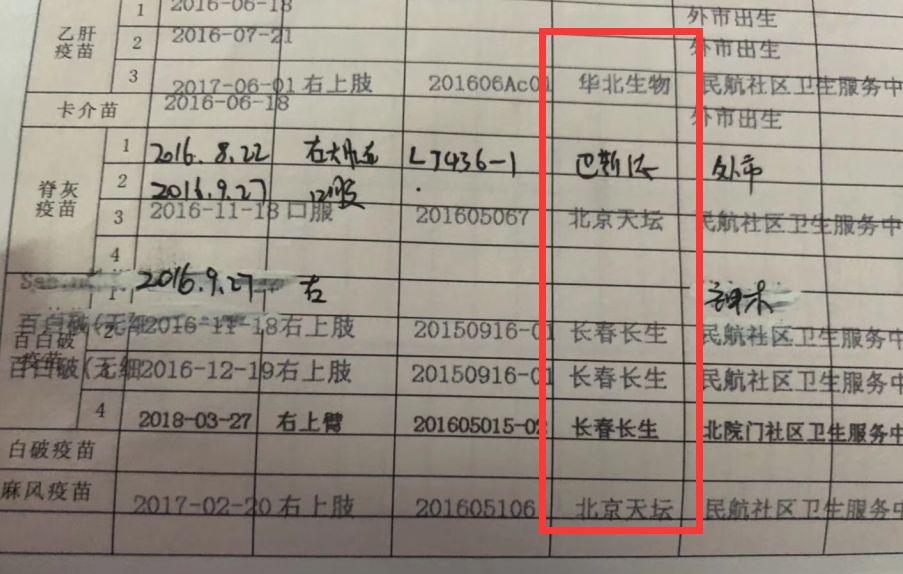 乙肝疫苗
1 2016-06-18 外市出生
2 2016-07-21 外市出生
3 2017-06-01 右上肢 201606Ac01 华北生物 民航社区卫生服务中
卡介苗 2016-06-18 外市出生
脊灰疫苗
1 2016.8.22 L7436-1 巴斯德 外市
2 2016.9.27 口服
3 2016-11-18 口服 201605067 北京天坛 民航社区卫生服务中
4
百白破疫苗
1 2016.9.27 右
百白破(无细 2 2016-11-18 右上肢 20150916-01 长春长生 民航社区卫生服务中
百白破(无细 2016-12-19 右上肢 20150916-01 长春长生 民航社区卫生服务中
4 2018-03-27 右上臂 201605015-02 长春长生 北院门社区卫生服务中
白破疫苗
麻风疫苗
2017-02-20 右上肢 201605106 北京天坛 民航社区卫生服务中